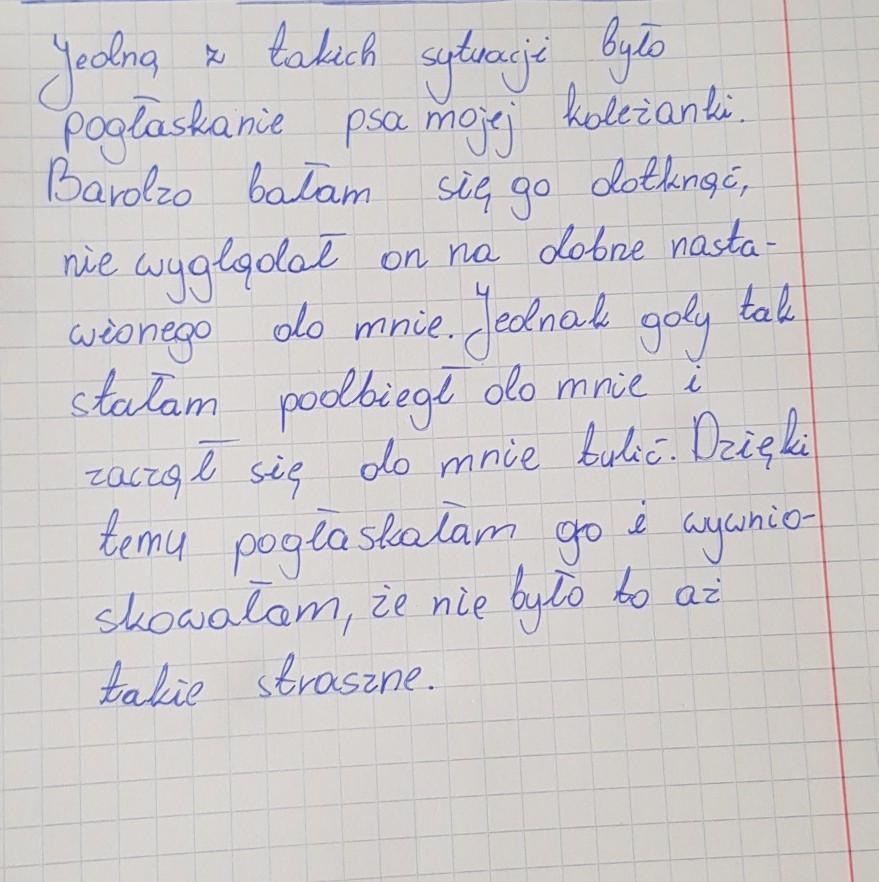 Jedną z takich sytuacji było
pogłaskanie psa mojej koleżanki.
Bardzo bałam się go dotknąć,
nie wyglądał on na dobne nasta-
wionego do mnie. Jednak gdy tak
stałam podbiegł do mnie i
zaczął się do mnie tulić. Dzięki
temu pogłaskałam go i wywnio-
skowałam, że nie było to aż
takie straszne.